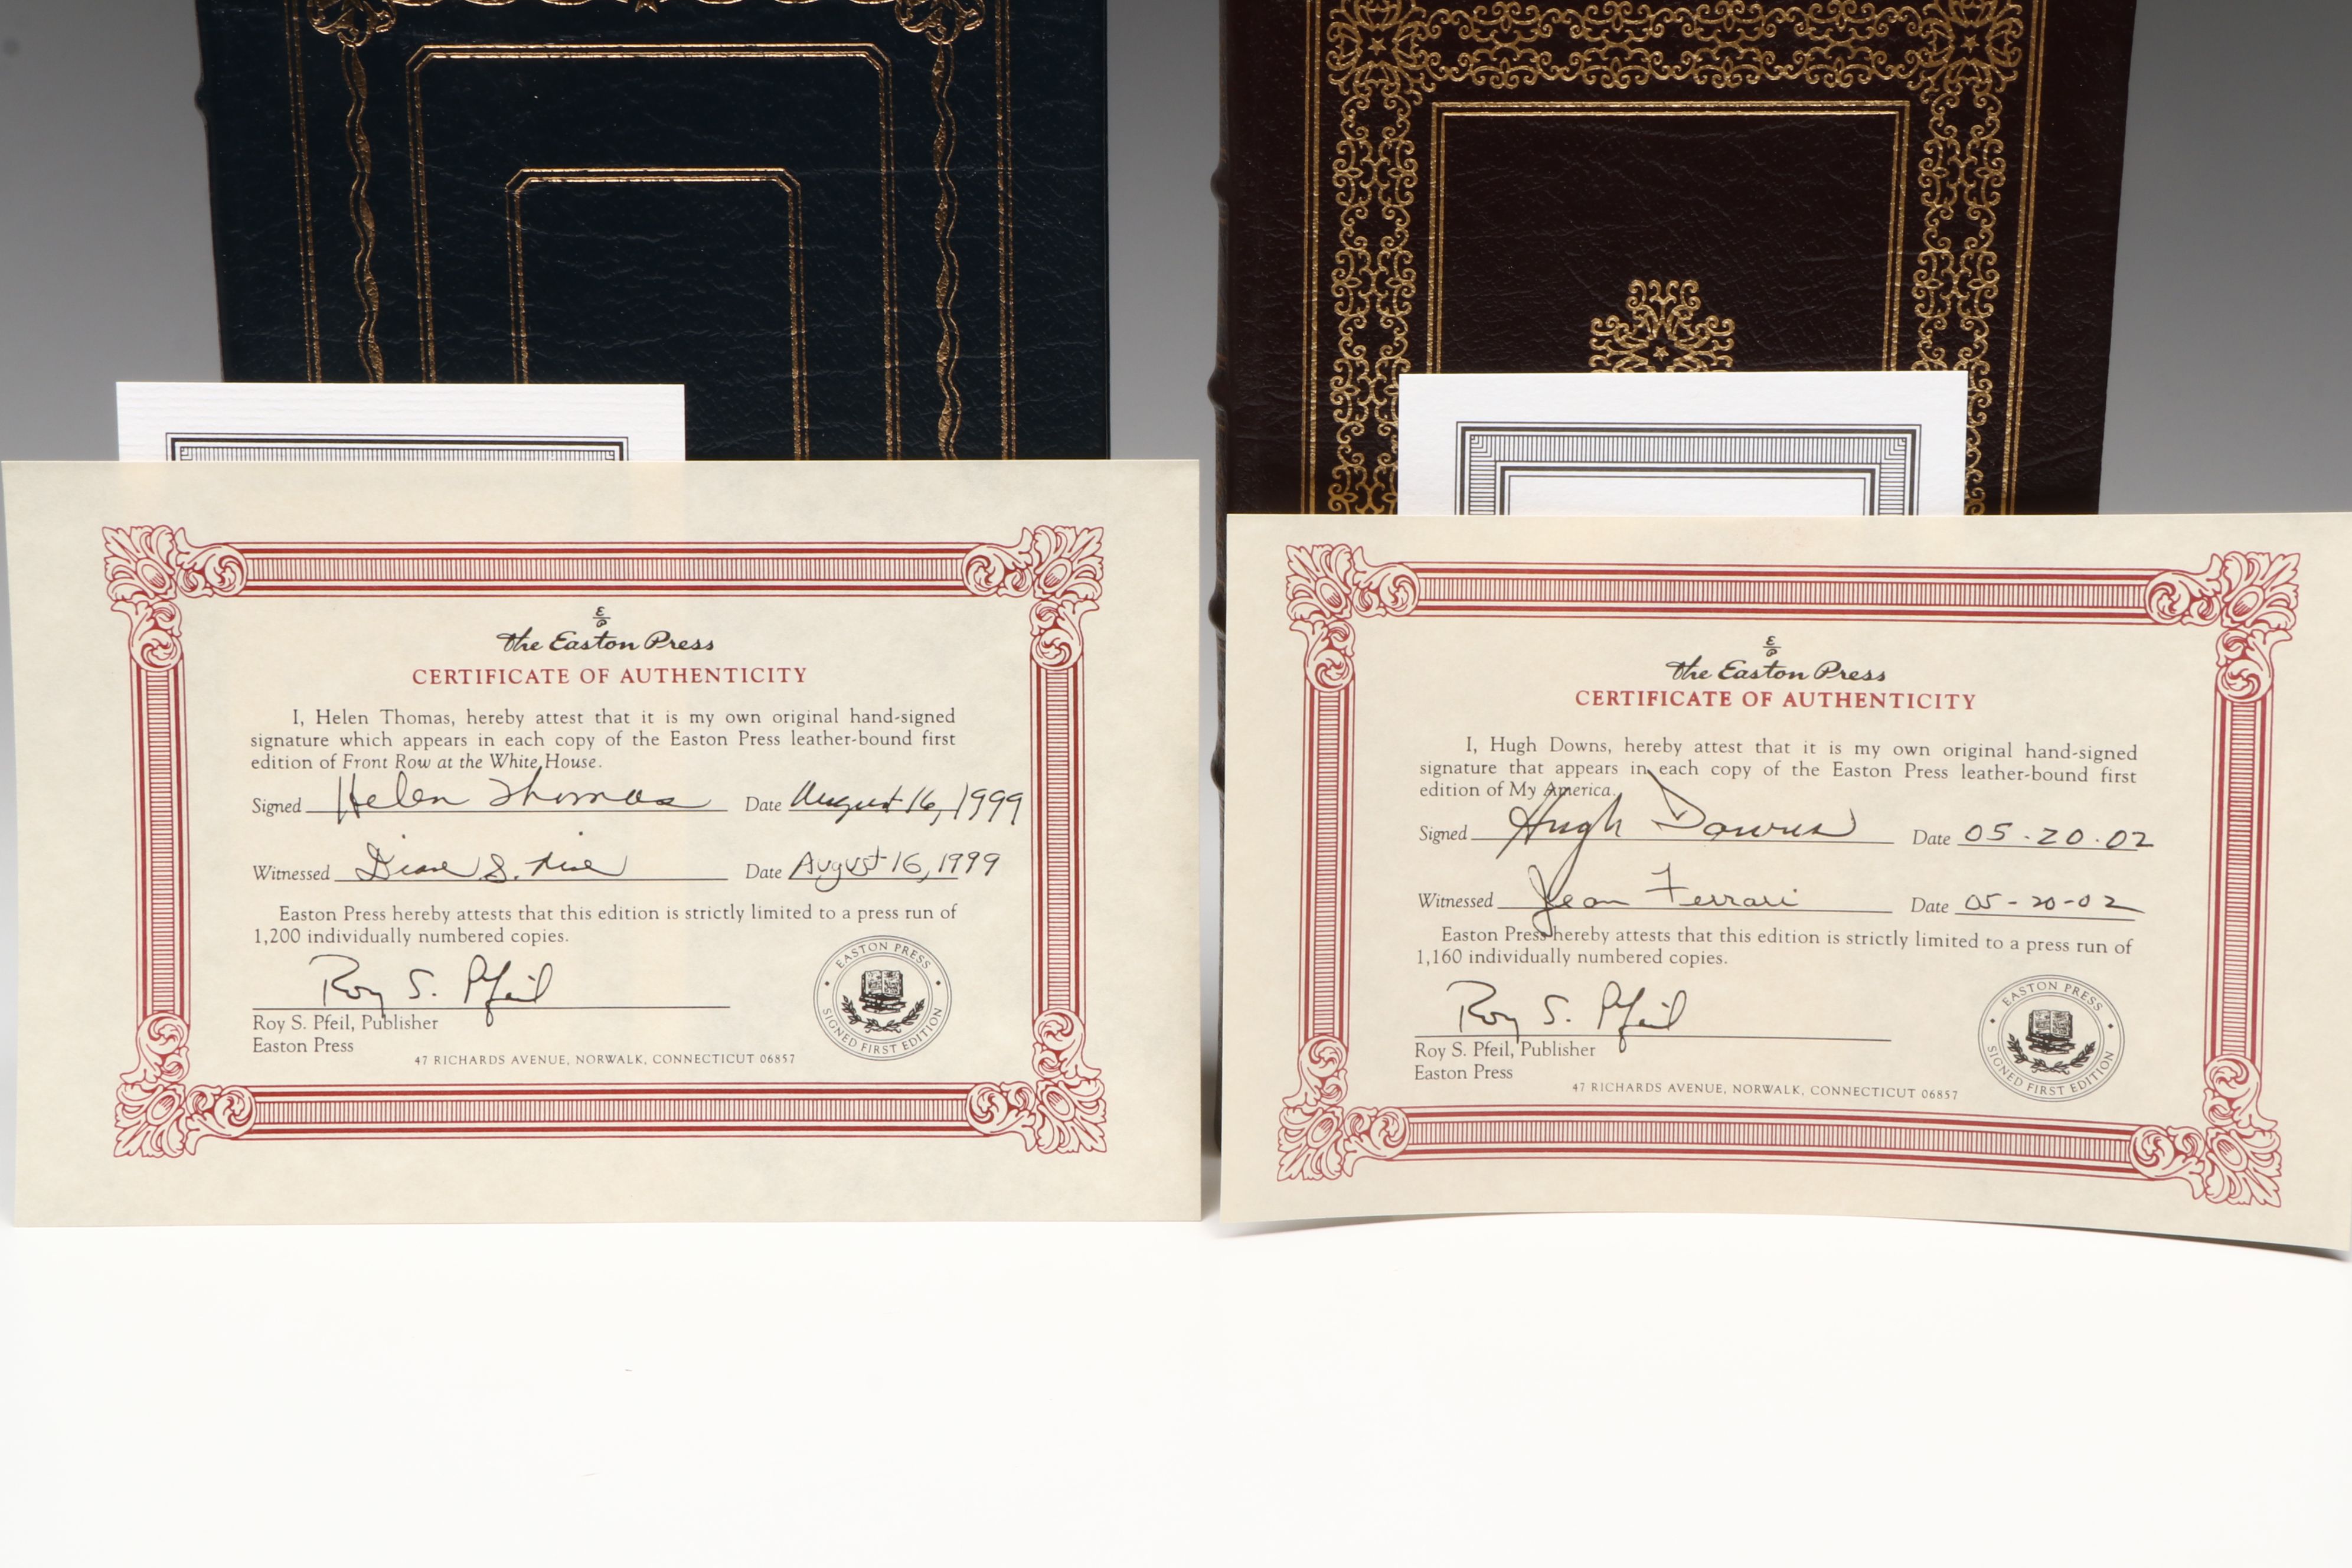 E/P
the Easton Press
CERTIFICATE OF AUTHENTICITY
I, Helen Thomas, hereby attest that it is my own original hand-signed
signature which appears in each copy of the Easton Press leather-bound first
edition of Front Row at the White House.
Signed Helen Thomas Date August 16, 1999
Witnessed Diane S. Date August 16, 1999
Easton Press hereby attests that this edition is strictly limited to a press run of
1,200 individually numbered copies.
Roy S. Pfeil
Roy S. Pfeil, Publisher
Easton Press
47 RICHARDS AVENUE, NORWALK, CONNECTICUT 06857
EASTON PRESS
SIGNED FIRST EDITION
E/P
the Easton Press
CERTIFICATE OF AUTHENTICITY
I, Hugh Downs, hereby attest that it is my own original hand-signed
signature that appears in each copy of the Easton Press leather-bound first
edition of My America.
Signed Hugh Downs Date 05-20-02
Witnessed Jean Ferrari Date 05-20-02
Easton Press hereby attests that this edition is strictly limited to a press run of
1,160 individually numbered copies.
Roy S. Pfeil
Roy S. Pfeil, Publisher
Easton Press
47 RICHARDS AVENUE, NORWALK, CONNECTICUT 06857
EASTON PRESS
SIGNED FIRST EDITION